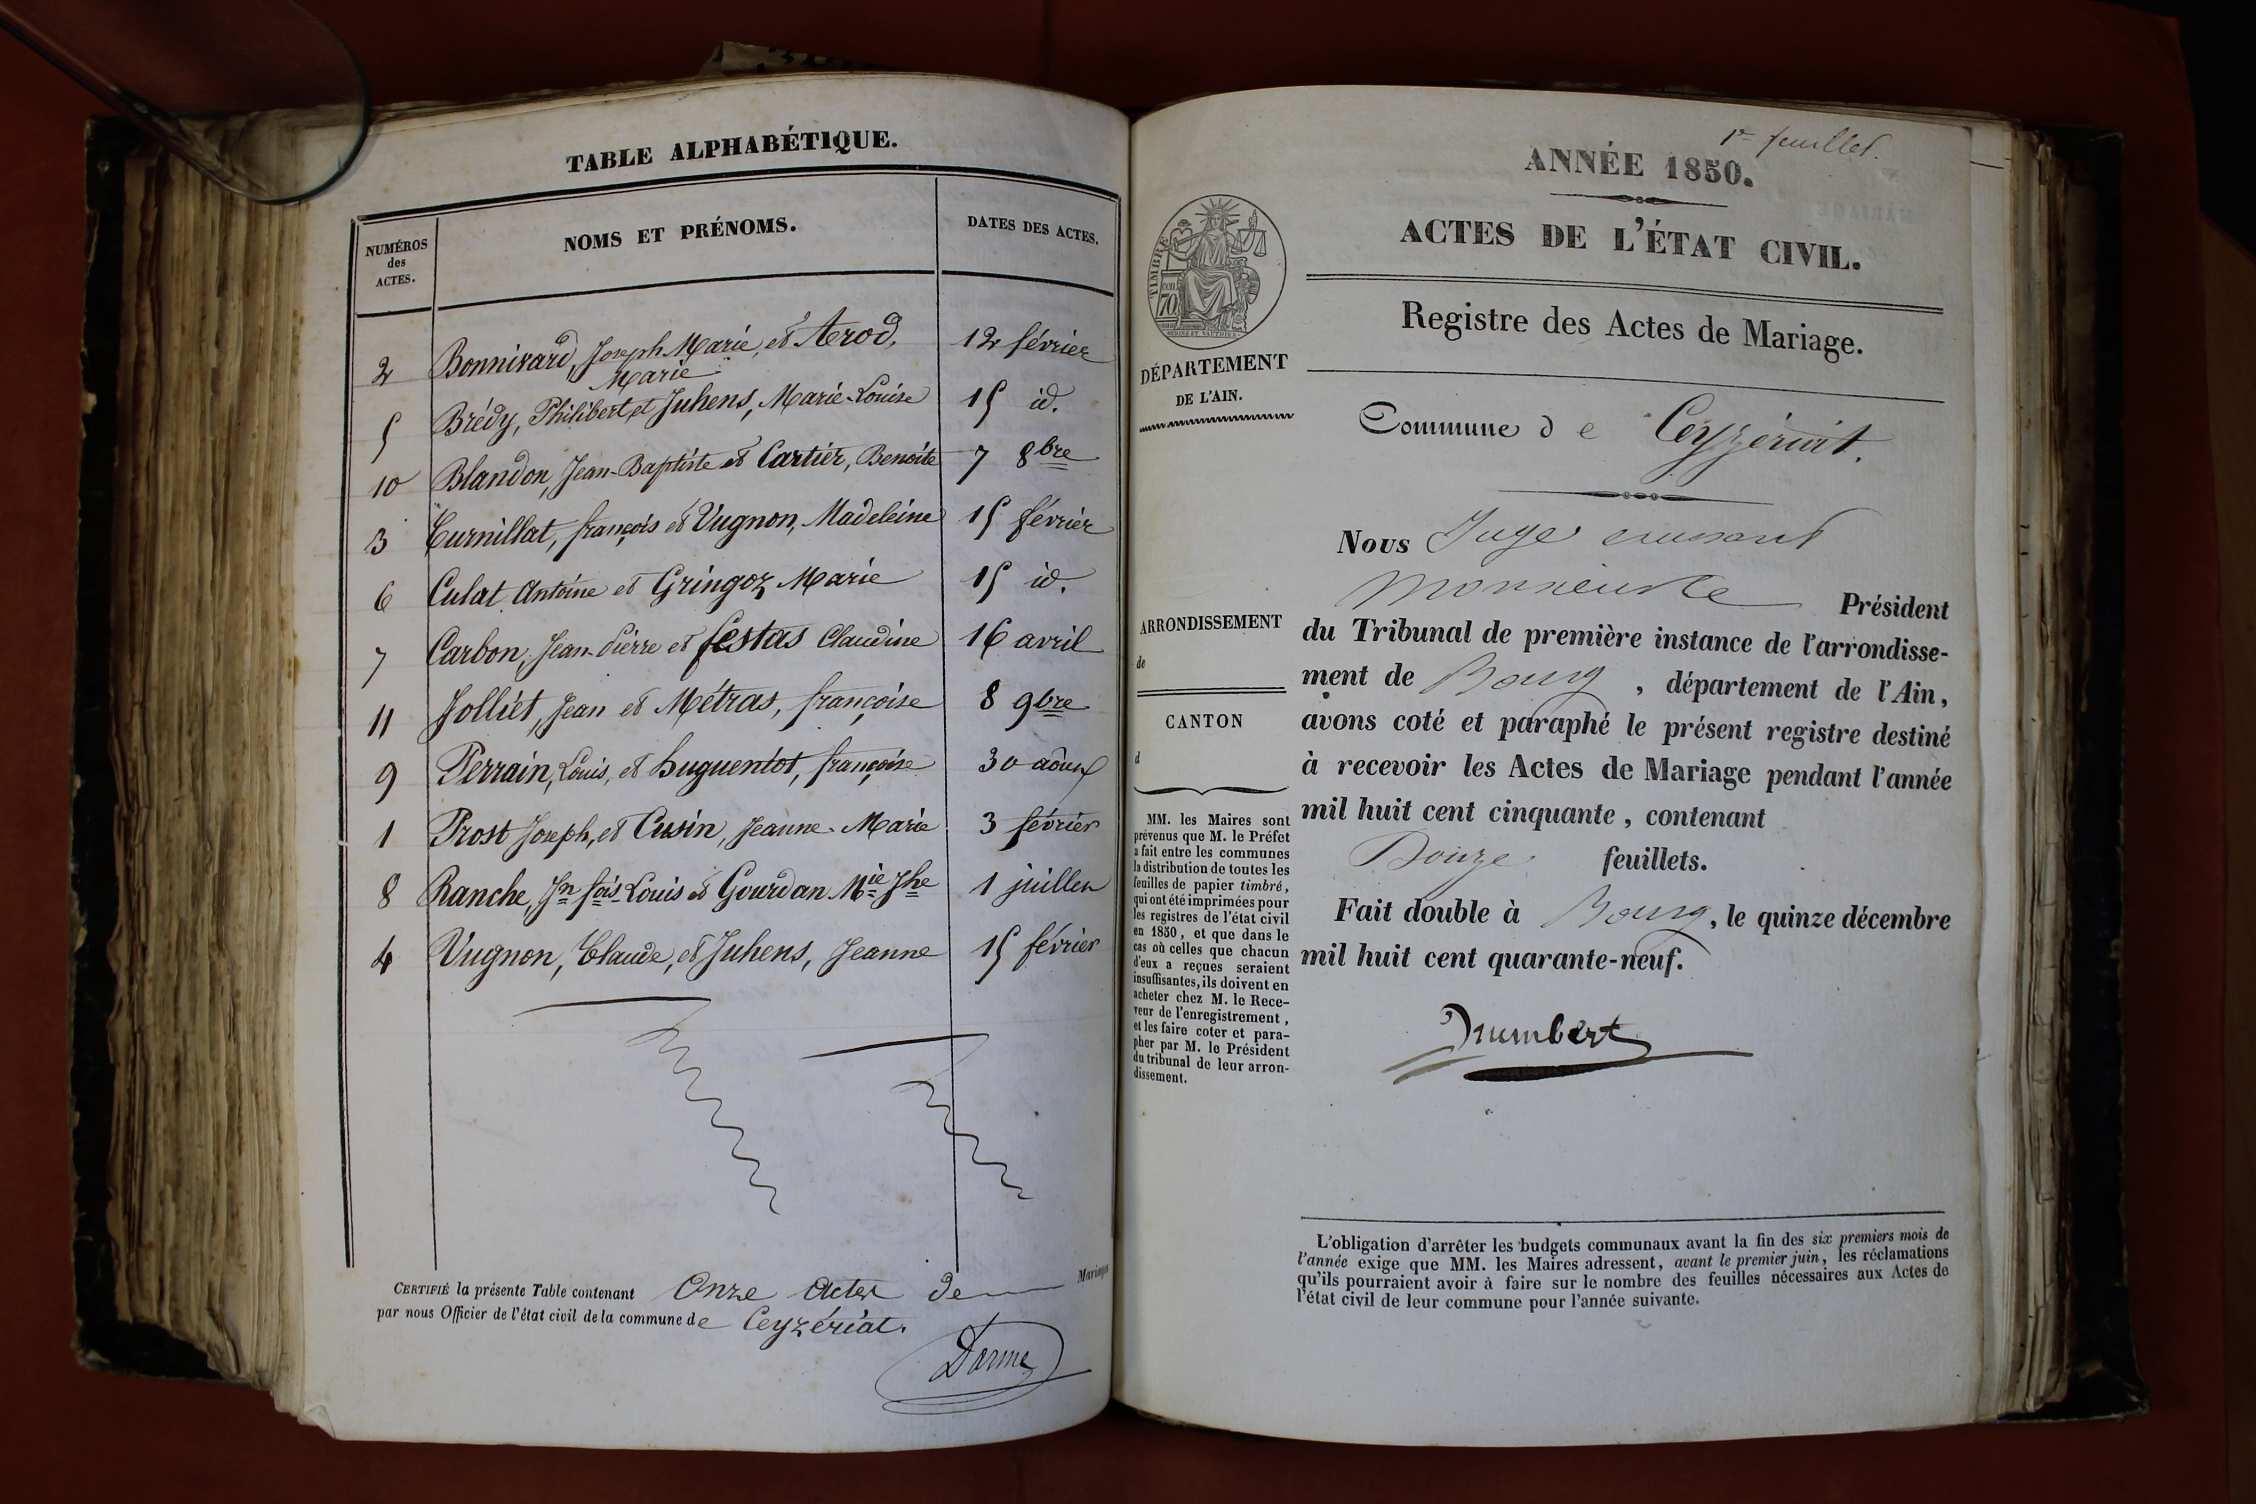 TABLE ALPHABÉTIQUE.
NUMÉROS
des
ACTES.
NOMS ET PRÉNOMS.
DATES DES ACTES.
2 Bonnivard, Joseph Marie, et Aerod, 12 février
Marie
5 Brédy, Philibert, et Juhens, Marie-Louise 15 id.
10 Blandon, Jean-Baptiste et Cartier, Benoite 7 8bre
3 Curnillat, françois et Vugnon, Madeleine 15 février
6 Culat Antoine et Gringoz Marie 15 id.
7 Carbon, Jean-Pierre et festas Claudine 16 avril
11 Jolliet, Jean et Métras, françoise 8 9bre
9 Perrain, Louis, et hugueniot, françoise 30 août
1 Prost Joseph, et Cusin, Jeanne-Marie 3 février
8 Ranche, Jn fois Louis et Gourdan Mie Jhe 1 juillet
4 Vugnon, Claude, et Juhens, Jeanne 15 février
CERTIFIÉ la présente Table contenant Onze Actes de Mariages
par nous Officier de l'état civil de la commune de Ceyzériat.
Darme
1er feuillet.
ANNÉE 1850.
ACTES DE L'ÉTAT CIVIL.
Registre des Actes de Mariage.
TIMBRE
70
DÉPARTEMENT
DE L'AIN.
ARRONDISSEMENT
de
CANTON
d
MM. les Maires sont
prévenus que M. le Préfet
a fait entre les communes
la distribution de toutes les
feuilles de papier timbré,
qui ont été imprimées pour
les registres de l'état civil
en 1850, et que dans le
cas où celles que chacun
d'eux a reçues seraient
insuffisantes, ils doivent en
acheter chez M. le Rece-
veur de l'enregistrement,
et les faire coter et para-
pher par M. le Président
du tribunal de leur arron-
dissement.
Commune de Ceyzériat.
Nous Juge
Président
du Tribunal de première instance de l'arrondisse-
ment de Bourg, département de l'Ain,
avons coté et paraphé le présent registre destiné
à recevoir les Actes de Mariage pendant l'année
mil huit cent cinquante, contenant
Douze feuillets.
Fait double à Bourg, le quinze décembre
mil huit cent quarante-neuf.
L'obligation d'arrêter les budgets communaux avant la fin des six premiers mois de
l'année exige que MM. les Maires adressent, avant le premier juin, les réclamations
qu'ils pourraient avoir à faire sur le nombre des feuilles nécessaires aux Actes de
l'état civil de leur commune pour l'année suivante.